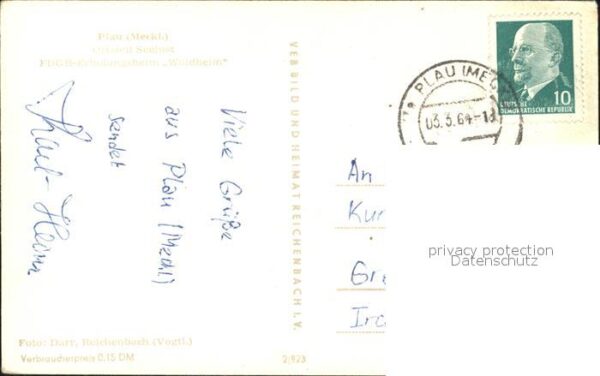 Plau (Meckl.)
Ortsteil Seelust
FDGB-Erholungsheim „Waldheim"
Viele Grüße
aus Plau (Meckl)
sendet
Karl-Heinz
VEB BILD UND HEIMAT REICHENBACH I. V.
PLAU (MEC
03.3.64-18
10
DEUTSCHE
DEMOKRATISCHE REPUBLIK
An
Kur
Gr
privacy protection
Datenschutz
Foto: Darr, Reichenbach (Vogtl.)
Verbraucherpreis 0,15 DM